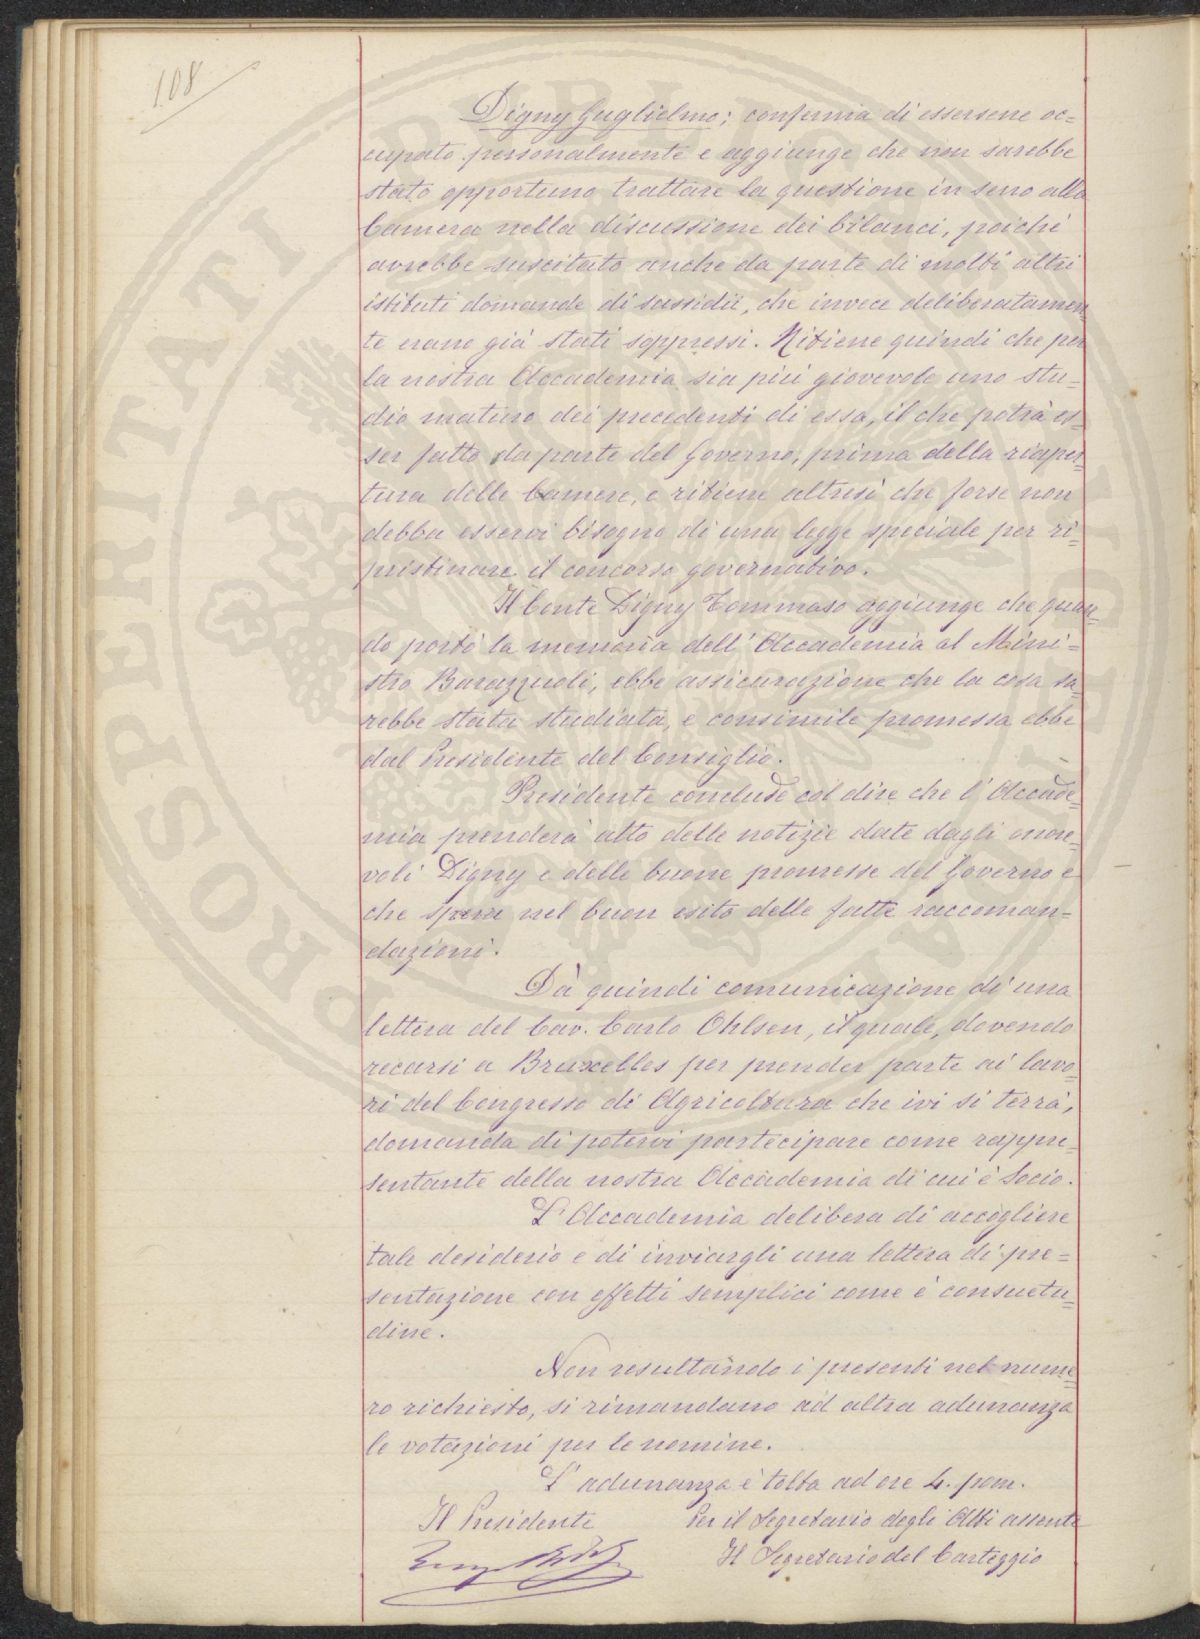 108
Digny Guglielmo; conferma di essersene oc=
cupato personalmente e aggiunge che non sarebbe
stato opportuno trattare la questione in seno alla
Camera nella discussione dei bilanci, poiché
avrebbe suscitato anche da parte di molti altri
istituti domande di sussidii, che invece deliberatamen
te erano già stati soppressi. Ritiene quindi che per
la nostra Accademia sia più giovevole uno stu=
dio maturo dei precedenti di essa, il che potrà es=
ser fatto da parte del Governo, prima della riaper=
tura delle Camere, e ritiene altresì che forse non
debba esservi bisogno di una legge speciale per ri=
pristinare il concorso governativo.
Il Conte Digny Tommaso aggiunge che quan=
do portò la memoria dell'Accademia al Mini=
stro Barazzuoli, ebbe assicurazione che la cosa sa=
rebbe stata studiata, e consimile promessa ebbe
dal Presidente del Consiglio.
Presidente conclude col dire che l'Accade=
mia prenderà atto delle notizie date dagli onore=
voli Digny e delle buone promesse del Governo e
che spera nel buon esito delle fatte raccoman=
dazioni.
Dà quindi comunicazione di una
lettera del Cav. Carlo Ohlsen, il quale, dovendo
recarsi a Bruxelles per prender parte ai lavo=
ri del Congresso di Agricoltura che ivi si terrà,
domanda di potervi partecipare come rappre=
sentante della nostra Accademia di cui è Socio.
L'Accademia delibera di accogliere
tale desiderio e di inviargli una lettera di pre=
sentazione con effetti semplici come è consuetu=
dine.
Non resultando i presenti nel nume=
ro richiesto, si rimandano ad altra adunanza
le votazioni per le nomine.
L'adunanza è tolta ad ore 4. pom.
Il Presidente Per il Segretario degli Atti assente
Il Segretario del Carteggio
PROSPERITATI PUBLICAE AUGENDAE